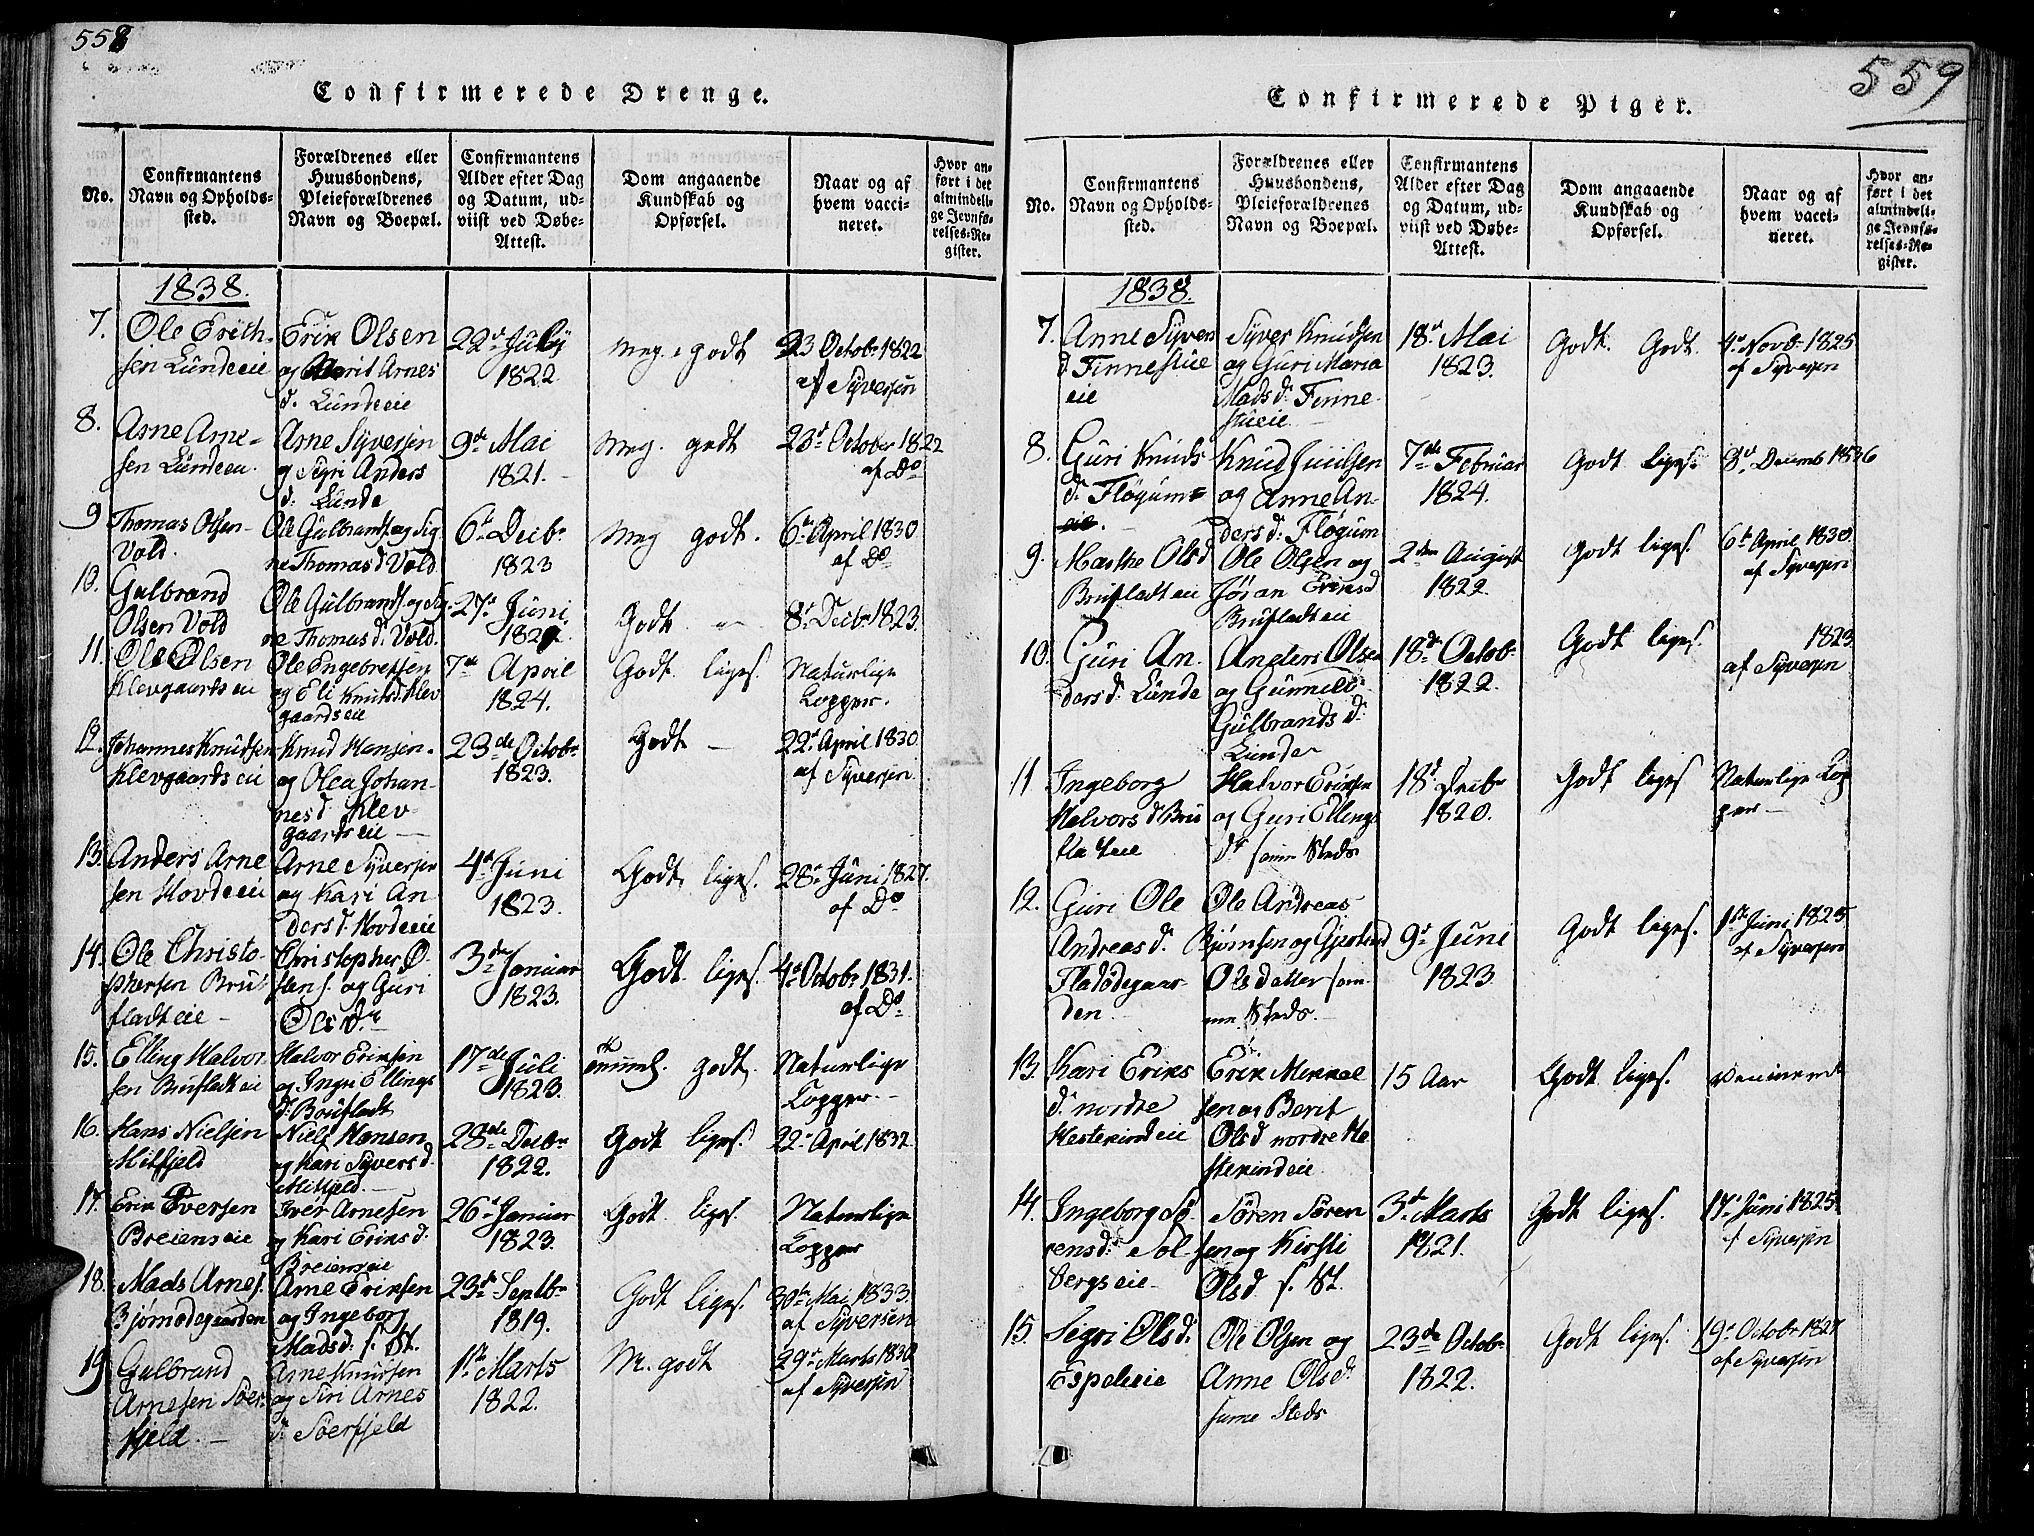 558
Confirmerede Drenge.
No.
Confirmantens
Navn og Opholds-
sted.
Forældrenes eller
Huusbondens,
Pleieforældrenes
Navn og Boepæl.
Confirmantens
Alder efter Dag
og Datum, ud-
viist ved Døbe-
Attest.
Dom angaaende
Kundskab og
Opførsel.
Naar og af
hvem vacci-
neret.
Hvor an-
ført i det
almindeli-
ge Jevnfø-
relses-Re-
gister.
1838.
7.
Ole Erich-
sen Lundeeie
Erik Olsen
og Marit Arnes
d. Lundeeie
22d July
1822
meg. godt
23 Octobr 1822
af Syversen
8.
Arne Arne-
sen Lundeeie.
Arne Syversen
og Sigri Anders
d. Lunde
9de Mai
1821.
Meg. godt
23d October 1822
af Do
9
Thomas Olsen
Vold.
Ole Gulbrands. og Sig
ne Thomas d Vold
6te Decbr
1823
Meg godt.
6te April 1830
af Do
10.
Gulbrand
Olsen Vold
Ole Gulbrands. og Sig-
ne Thomas d. Vold.
27d Juni
1821.
Godt
8d Decbr 1823.
11.
Ole Olsen
Klevgaardseie
Ole Engebretsen
og Eli Knuts d. Klev
gaardseie
7de April
1824.
Godt liges.
Naturlige
Kopper.
12.
Johannes Knudsen
Klevgaardseie
Knud Hansen
og Olea Johan-
nes d Klev-
gaardseie
23de Octobr
1823.
Godt
22d April 1830
af Syversen
13.
Anders Arne
sen Hovdeeie
Arne Syversen
og Kari An
ders d. Hovdeeie
4d Juni
1823.
Godt liges.
28de Juni 1827.
af Do
14.
Ole Christo-
phersen Bru-
fladteie
Christopher O-
lsen s. og Guri
Ols d.
3de Januar
1823.
Godt liges.
4d Octobr 1831.
af Do
15.
Elling Halvor
sen Brufladteie
Halvor Eriksen
og Ingri Ellings
d. Brufladt
17de Juli
1823.
godt.
Naturlige
Kopper.
16.
Hans Nielsen
Mitfjeld
Niels Hansen
og Kari Syvers d.
Mitfjeld.
28de Decbr
1822.
Godt liges.
22d April 1832.
17.
Erik Iversen
Breienseie
Iver Arnesen
og Kari Eriks d.
Breienseie
26d Januar
1823.
Godt liges.
Naturlige
Kopper
18.
Mads Arnes.
Bjørnødegaarden
Arne Eriksen
og Ingeborg
Mads d. s. St.
23de Septbr
1819.
Godt liges.
30te Mai 1833
af Syversen
19
Gulbrand
Arnesen Sør-
fjeld.
Arne Knutsen
og Siri Arnes
d. Sørfjeld
1te Marts
1822.
M. godt
29d Marts 1830
af Syversen
559
Confirmerede Piger.
No.
Confirmantens
Navn og Opholds-
sted.
Forældrenes eller
Huusbondens,
Pleieforældrenes
Navn og Boepæl.
Confirmantens
Alder efter Dag
og Datum, ud-
viist ved Døbe-
Attest.
Dom angaaende
Kundskab og
Opførsel.
Naar og af
hvem vacci-
neret.
Hvor an-
ført i det
almindeli-
ge Jevnfø-
relses-Re-
gister.
1838.
7.
Anne Syvers
d Finnestue
eie
Syver Knudsen
og Guri Maria
Mads d. Finne-
stueeie.
18d Mai
1823.
Godt. Godt.
4d Novb. 1825
af Syversen
8.
Guri Knuds
d. Fløgum-
Knud Juulsen
og Anne An-
ders d. Fløgum
7de Februar
1824.
Godt liges.
8d Decemb 1836
9.
Marthe Ols d
Brufladteie
Ole Olsen og
Jøran Eriks d
Brufladteie
2den August
1822.
Godt liges.
6te April 1830.
af Syversen
10.
Guri An-
ders d. Lunde
Anders Olsen
og Gunnild
Gulbrands d.
Lunde
18de Octob.
1822.
Godt liges.
1823
af Syversen
11
Ingeborg
Halvors d Bru
fladteie
Halvor Eriksen
og Guri Ellings
dr samme Steds
18d Decbr
1820.
Godt liges
Naturlige Kop
per
12.
Guri Ole
Andreas d.
Fladødegaar-
den.
Ole Andreas
Bjørnsen og Gjertrud
Olsdatter sam-
me Steds.
9d Juni
1823.
Godt liges.
1te Juni 1825
af Syversen
13.
Kari Eriks
d. nordre
Hestekindeie
Erik Mikkel
sen og Berit
Ols d nordre He
stekindeie.
15 Aar
Godt liges.
Vaccineret
14.
Ingeborg Sø-
rens d. Sol-
bergseie
Søren Søren
sen og Kirsti
Ols d. s. St.
3de Marts
1821.
Godt liges.
17d Juni 1825.
af Syversen
15.
Sigri Ols d.
Espelieeie
Ole Olsen og
Anne Ols d.
samme Steds
23de Octobr
1822.
Godt liges.
19d Octobr 1827
af Syversen